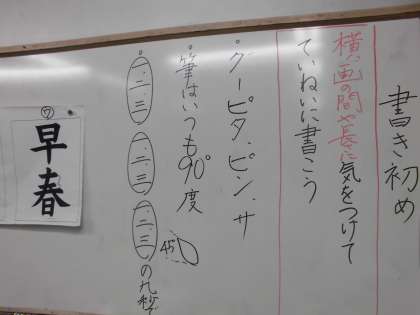 書き初め
横画の間や長に気をつけて
ていねいに書こう
・グー・ピタ・ピン・サ
・筆はいつも90°度
45
・一、二、三 一、二、三 一、二、三 の九秒で
⑦
早春